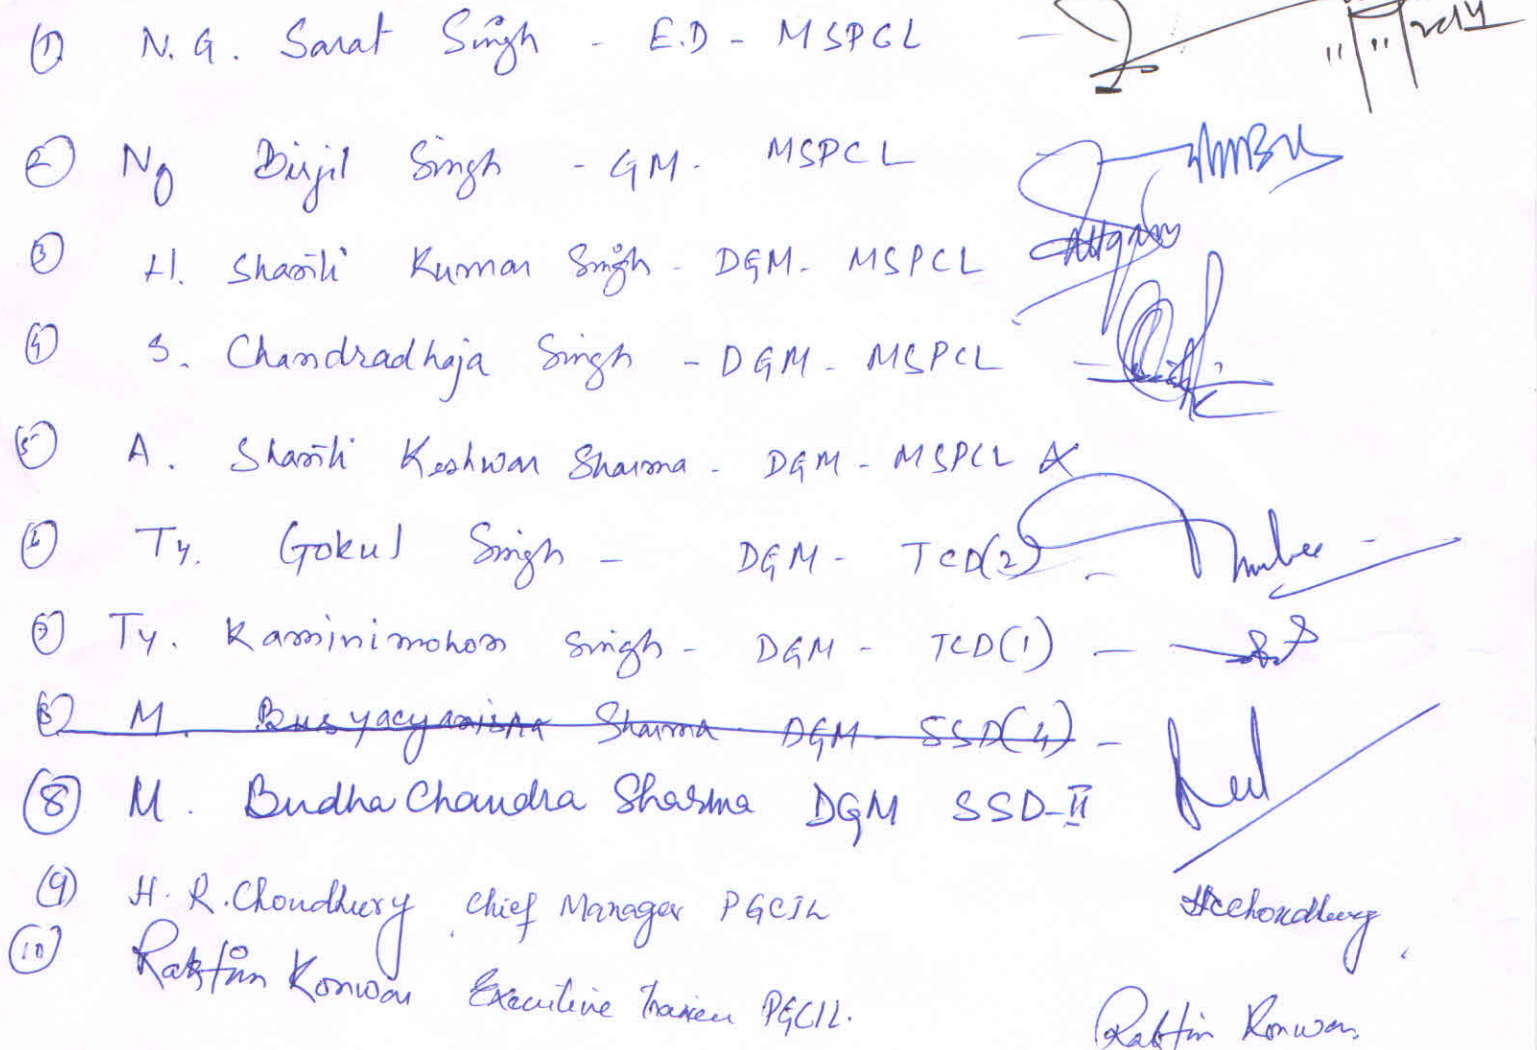 (1) N. G. Sarat Singh - E.D - MSPCL - 11/11/2014
(2) Ng Birjit Singh - GM - MSPCL
(3) H. Shanti Kumar Singh - DGM - MSPCL
(4) S. Chandradhaja Singh - DGM - MSPCL -
(5) A. Shanti Keshwar Sharma - DGM - MSPCL
(6) Ty. Gokul Singh - DGM - TCD(2) -
(7) Ty. Kaminimohon Singh - DGM - TCD(1) -
(8) M. Sharma DGM SSD(4) -
(8) M. Budha Chandra Sharma DGM SSD-II
(9) H. R. Choudhury Chief Manager PGCIL HRChoudhury
(10) Raktim Konwar Executive Trainee PGCIL. Raktim Konwar.